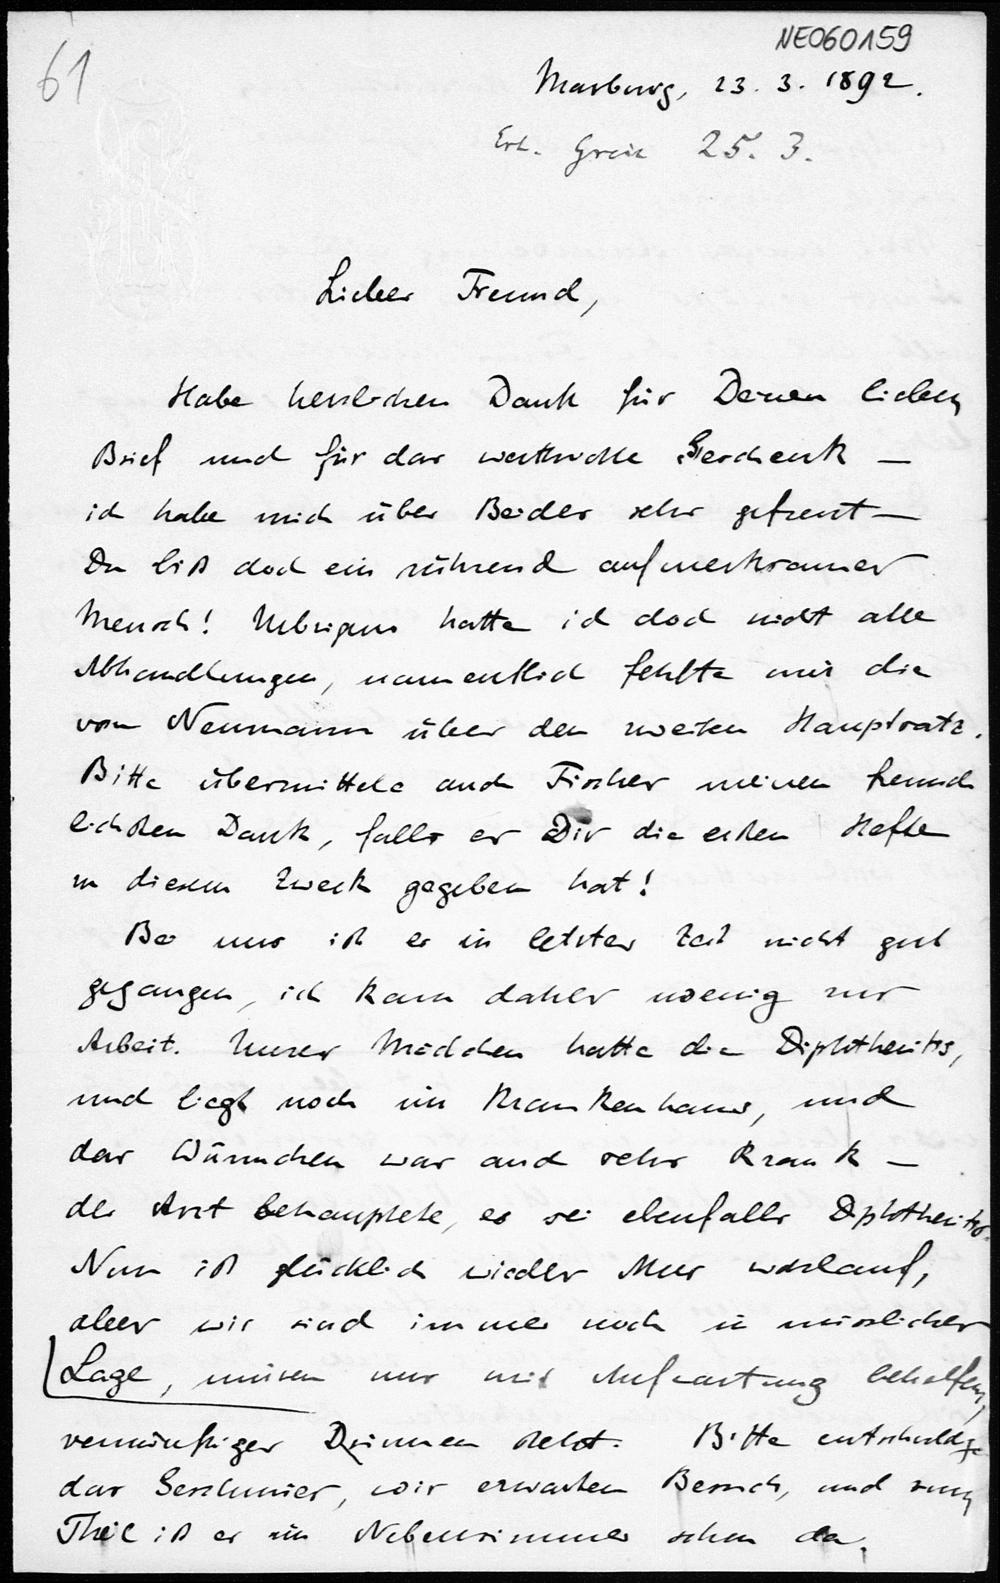 NE060159
61
Marburg, 23. 3. 1892.
Erh. 25. 3.
Lieber Freund,
Habe herzlichen Dank für Deinen lieben
Brief und für das werthvolle Geschenk —
ich habe mich über Beides sehr gefreut —
Du bist doch ein rührend aufmerksamer
Mensch! Uebrigens hatte ich doch nicht alle
Abhandlungen, namentlich fehlte mir die
von Neumann über den zweiten Hauptsatz.
Bitte übermittele auch Fischer meinen freund
lichsten Dank, falls er Dir die ersten Hefte
zu diesem Zweck gegeben hat!
Bei uns ist es in letzter Zeit nicht gut
gegangen, ich kam daher wenig zur
Arbeit. Unser Mädchen hatte die Diphtheritis,
und liegt noch im Krankenhaus, und
das Würmchen war auch sehr krank —
der Arzt behauptete, es sei ebenfalls Diphtheritis.
Nun ist glücklich wieder Alles wohlauf,
aber wir sind immer noch in misslicher
Lage, müssen uns mit Aufwartung behelfen,
vernünftiger steht. Bitte entschuldge
das Geschmier, wir erwarten Besuch, und zum
Theil ist er im Nebenzimmer schon da.